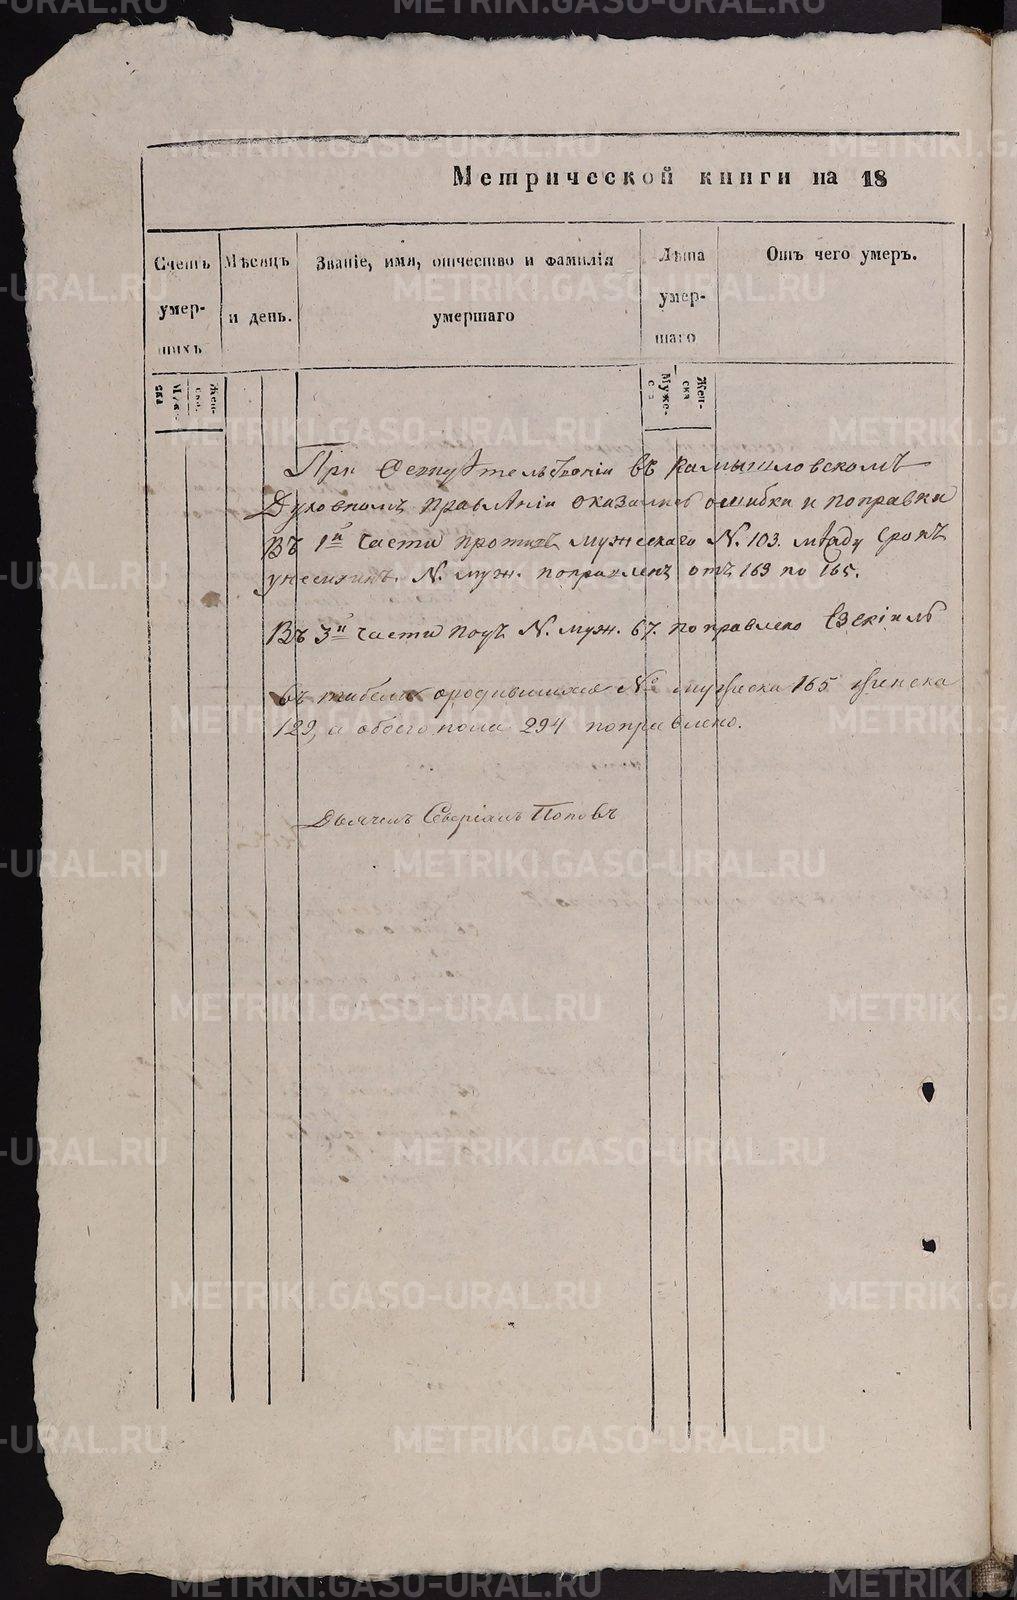 Метрической книги на 18
Счетъ умер- шихъ
Мѣсяцъ и день.
Званіе, имя, отчество и фамилія умершаго
Лѣта умер- шаго
Отъ чего умеръ.
Жен- ска.
Муже- с
Жен- ска
При Освидѣтельствовніи въ Камышловскомъ
Духовномъ правленіи оказались ошибки и поправки
Въ 1й части противъ мужескаго N. 103.
N. муж. поправленъ отъ 163 по 165.
Въ 3й части подъ N. муж. 67. поправлено Езекіиль
въ табели ородившихся №. мужеска 165 женска
129, и обоего пола 294 поправлено.
Дьячекъ Северіанъ Поповъ
METRIKI.GASO-URAL.RU